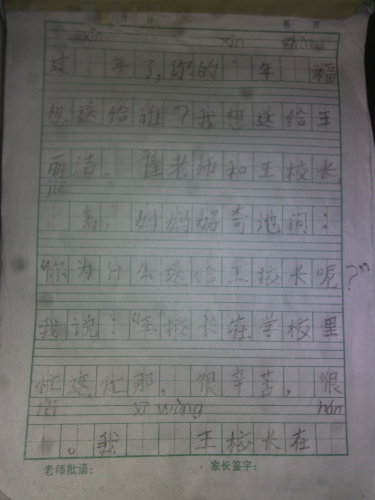 xīn xīn zhù
过 年了,你的 年 福
想送给谁?我想送给王
丽洁、崔老师和王校长,
jié
妈妈好奇地问:
“你为什么送给王校长呢?”
我说:“王校长在学校里
忙这忙那,很辛苦,很
lèi xī wàng hán
。我 王校长在
老师批语: 家长签字: